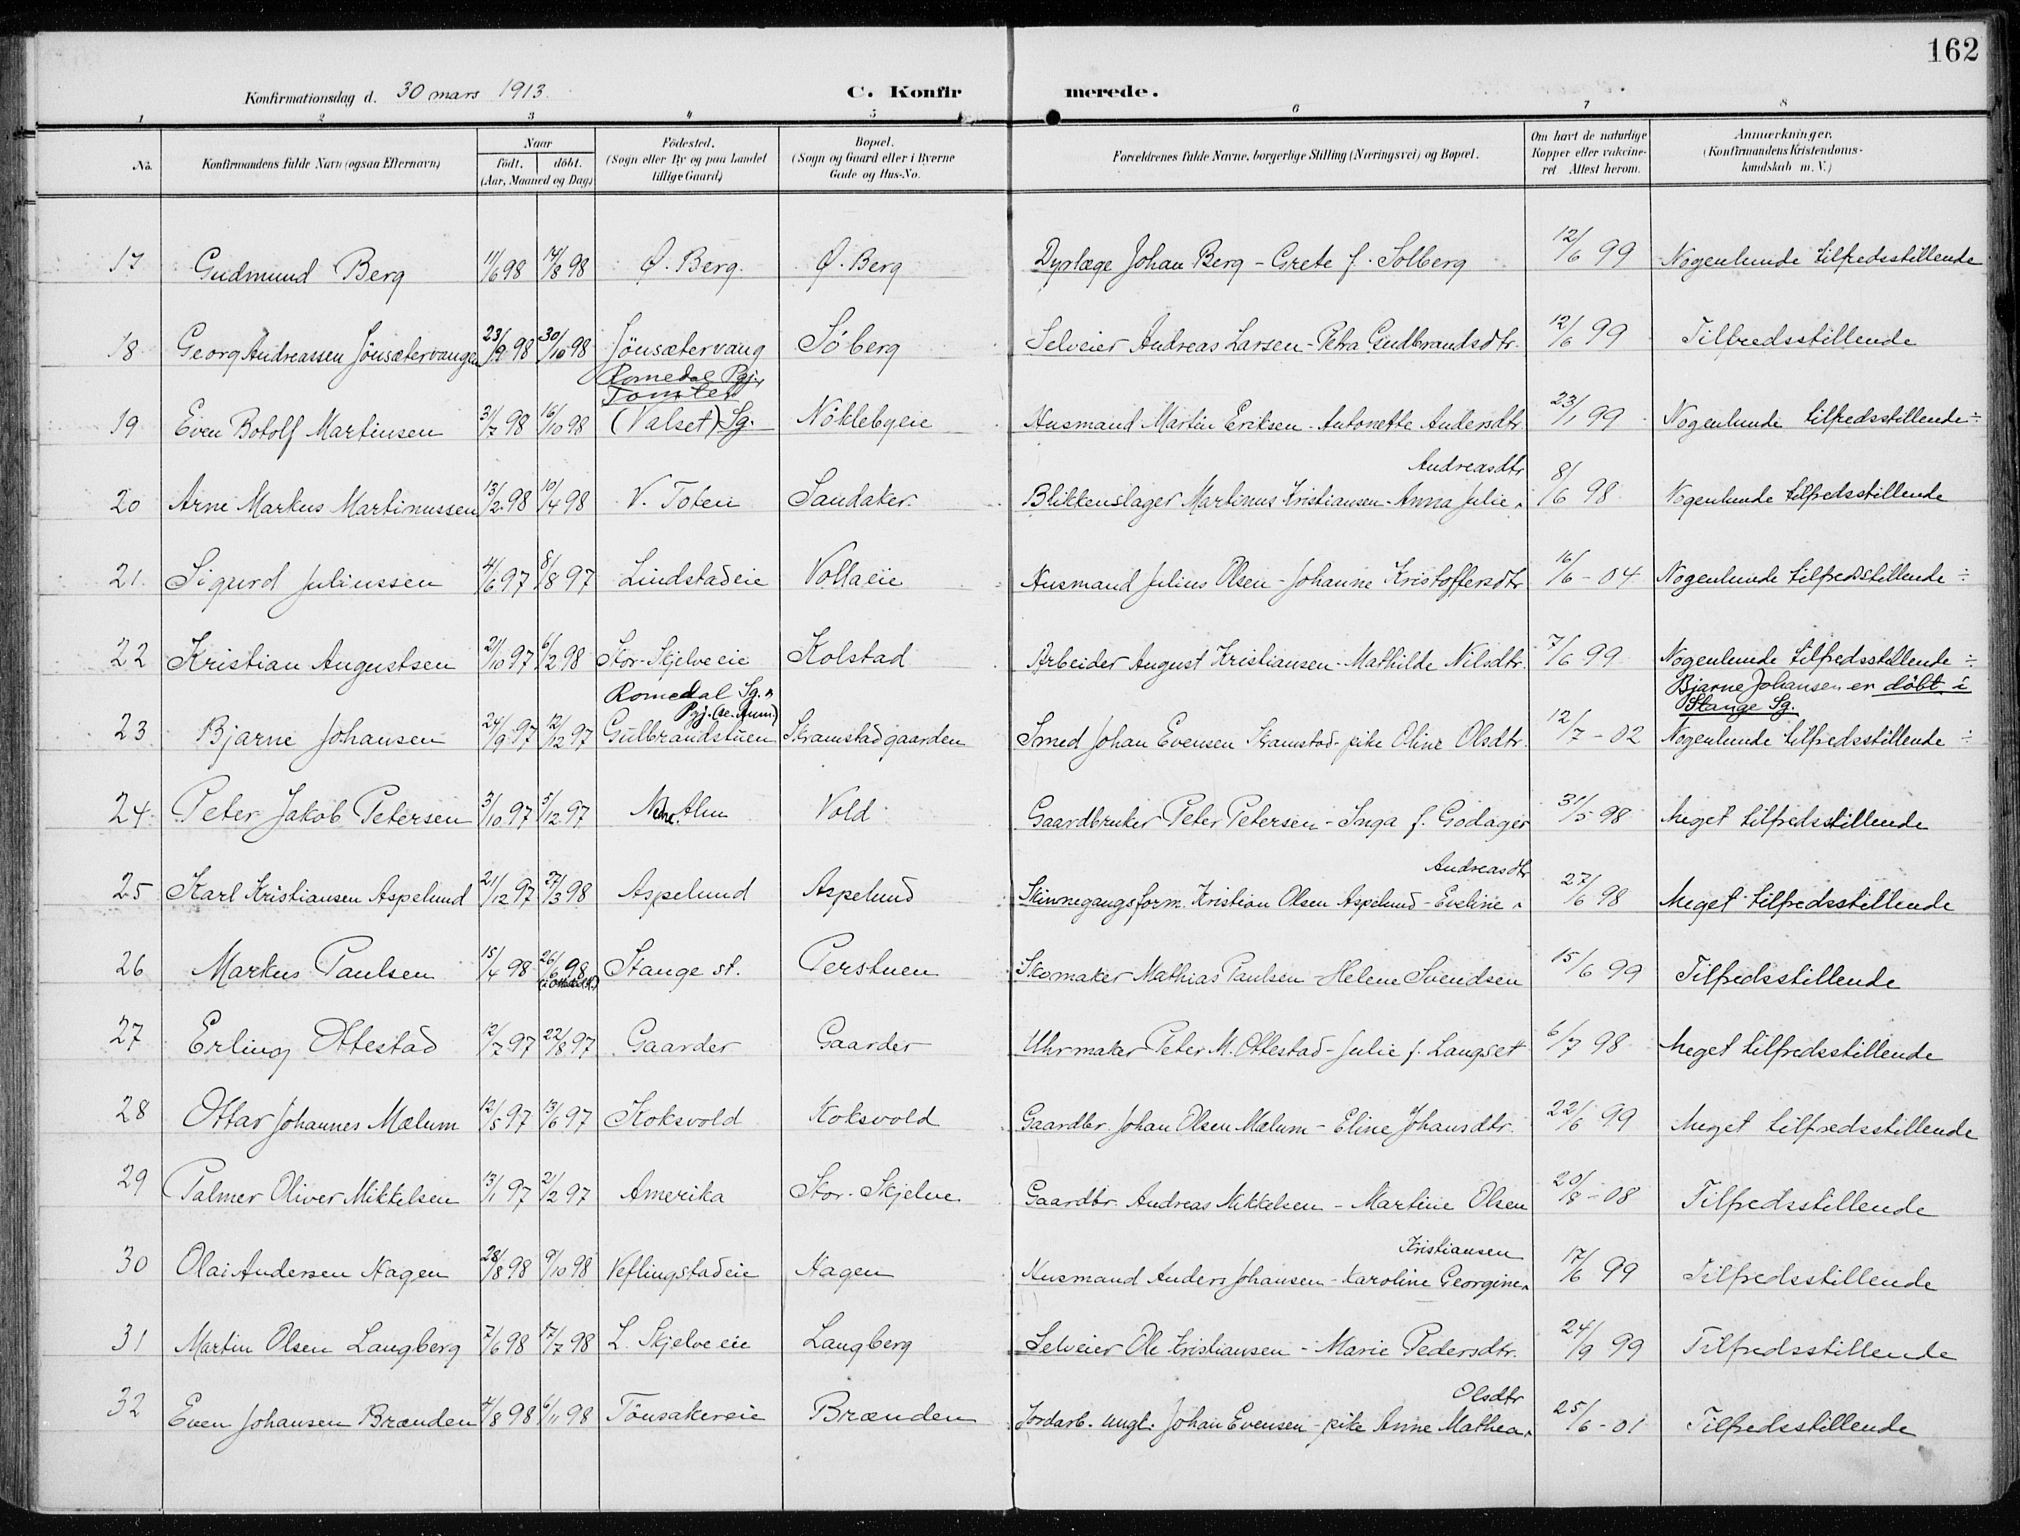 162
Konfirmationsdag d. 30 mars 1913. C. Konfirmerede.
1 2 3 4 5 6 7 8
No. Konfirmandens fulde Navn (ogsaa Efternavn) Naar født, døbt. (Aar, Maaned og Dag) Fødested. (Sogn eller By og paa Landet tillige Gaard) Bopæl. (Sogn og Gaard eller i Byerne Gade og Hus-No. Forældrenes fulde Navne, borgerlige Stilling (Næringsvei) og Bopæl. Om havt de naturlige Kopper eller vaccineret Attest herom. Anmærkninger. (Konfirmandens Kristendomskundskab m. V.)
17 Gudmund Berg 11/6 98 14/8 98 Ø. Berg. Ø. Berg Dyrlæge Johan Berg - Grete f. Solberg 12/6 99 Nogenlunde tilfredsstillende
18 Georg Andreassen Jönsætervangen 23/9 98 30/10 98 Jönsætervang Söberg Selveier Andreas Larsen - Petra Gudbrandsdtr. 12/6 99 Tilfredsstillende
Romedal Pgj.
Tomter
19 Even Botolf Martinsen 31/7 98 16/10 98 (Valset) Sg. Nöklebyeie Husmand Martin Eriksen - Antonette Andersdtr 23/1 99 Nogenlunde tilfredsstillende ÷
Andreasdtr
20 Arne Markus Martinussen 13/2 98 10/4 98 V. Toten Sandaker. Blikkenslager Martinus Kristiansen - Anna Julie 8/6 98 Nogenlunde tilfredsstillende
21. Sigurd Juliussen 4/6 97 8/8 97 Lindstadeie Vollaeie Husmand Julius Olsen - Johanne Kristoffersdtr 16/6 - 04 Nogenlunde tilfredsstillende ÷
22 Kristian Augustsen 21/10 97 6/2 98 Stor-Skjelve eie Kolstad Arbeider August Kristiansen - Mathilde Nilsdtr. 7/6 99 Nogenlunde tilfredsstillende ÷
Romedal Sg. Bjarne Johansen er döbt i
Pgj. (se. Anm) Stange Sg.
23 Bjarne Johansen 24/9 97 12/12 97 Gulbrandstuen Skramstadgaarden Smed Johan Evensen Skamstad - pike Oline Olsdtr. 12/7 - 02 Nogenlunde tilfredsstillende ÷
24. Peter Jakob Petersen 3/10 97 5/12 97 Nedre Alm Vold Gaardbruker Peter Petersen - Inga f. Godager 31/5 98 Meget tilfredsstillende
Andreasdtr
25 Karl Kristiansen Aspelund 21/12 97 27/3 98 Aspelund Aspelund Skinnegangsform. Kristian Olsen Aspelund - Eveline 27/6 98 Meget tilfredsstillende
26 Markus Paulsen 15/4 98 26/6 98 Stange st. Perstuen Skomaker Mathias Paulsen - Helene Svendsen 15/6 99 Tilfredsstillende
27 Erling Ottestad 12/7 97 22/8 97 Gaarder Gaarder Uhrmaker Peter M. Ottestad - Julie f. Langset 6/7 98 Meget tilfredsstillende
28 Ottar Johannes Mælum 12/5 97 13/6 97 Koksvold Koksvold Gaardbr. Johan Olsen Mælum - Eline Johansdtr. 22/6 99 Meget tilfredsstillende
29 Palmer Oliver Mikkelsen 13/1 97 2/2 97 Amerika Stor-Skjelve Gaardbr. Andreas Mikkelsen - Martine Olsen 20/8 - 08 Tilfredsstillende
Kristiansen
30 Olai Andersen Hagen 28/8 98 9/10 98 Veflingstadeie Hagen Husmand Anders Johansen - Karoline Georgine 17/6 99 Tilfredsstillende
31 Martin Olsen Langberg 7/6 98 17/7 98 L. Skjelve eie Langberg Selveier Ole Kristiansen - Marie Pedersdtr. 24/9 99 Tilfredsstillende
Olsdtr
32 Even Johansen Brænden 4/8 98 6/11 98 Tönsakereie Brænden Jordarb. ungk. Johan Evensen - pike Anne Mathea 25/6 - 01 Tilfredsstillende